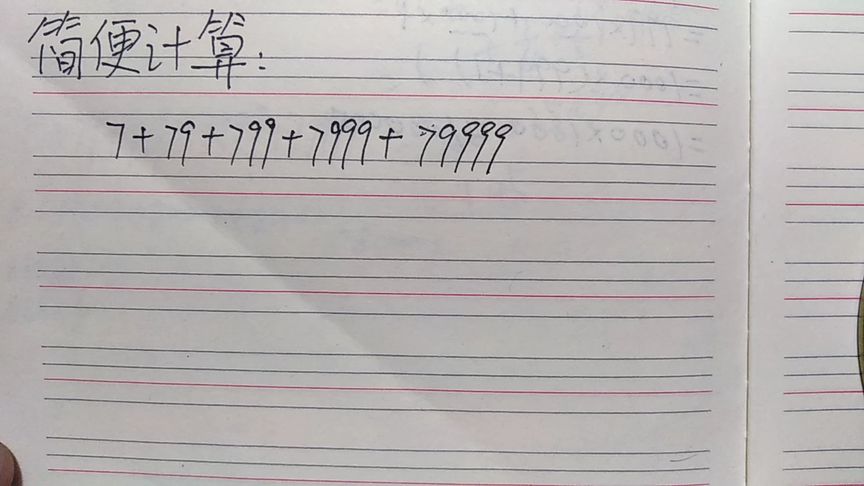 简便计算:
7+79+799+7999+79999